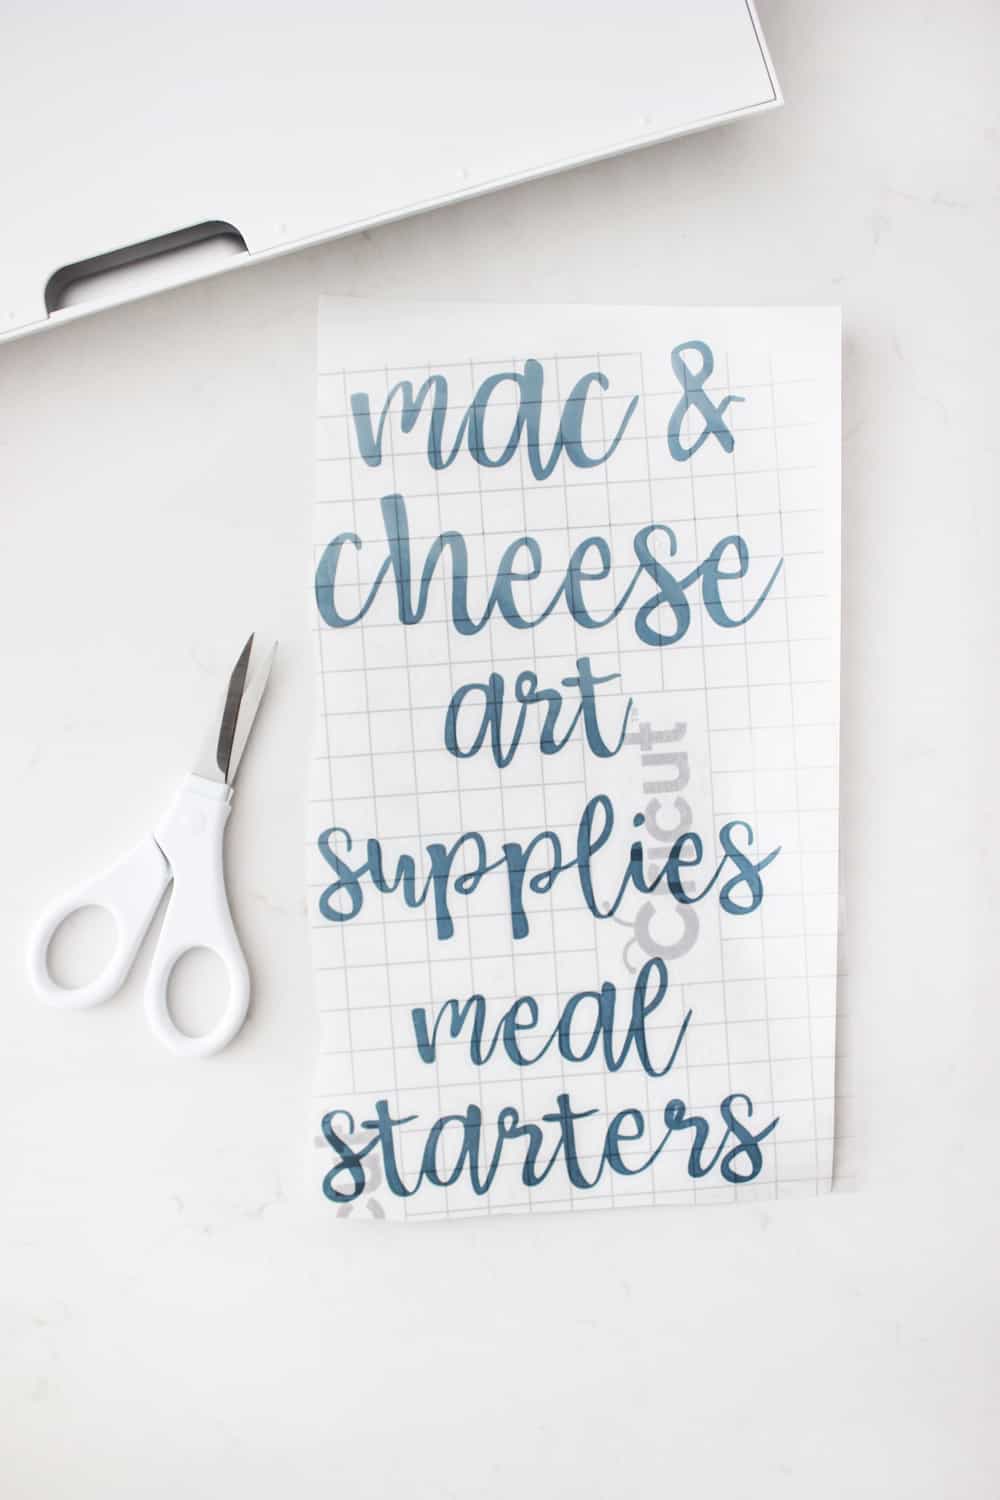 mac &
cheese
art
supplies
meal
starters
Cricut™
cut